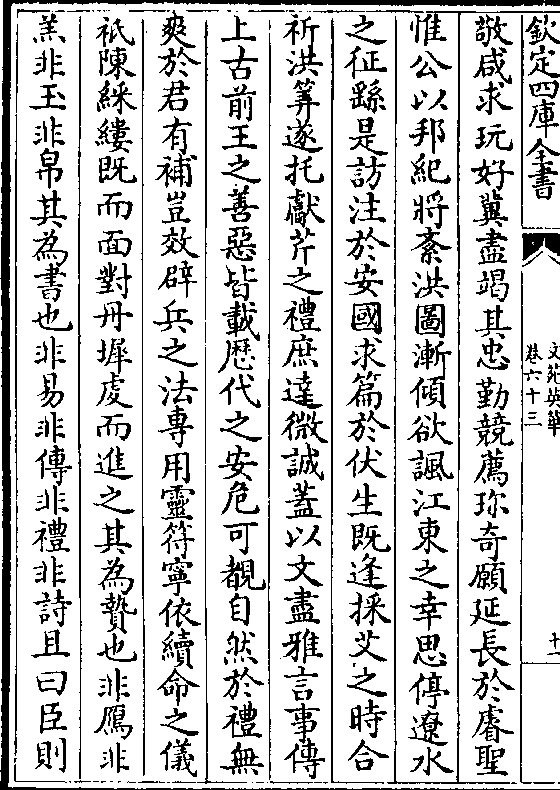 欽定四庫全書
文苑英華
卷六十三
敬咸求玩好冀盡竭其忠勤競薦珍奇願延長於睿聖
惟公以邦紀將紊洪圖漸傾欲諷江東之幸思停遼水
之征繇是訪注於安國求篇於伏生既逢採艾之時合
祈洪筭遂托獻芹之禮庶達微誠蓋以文盡雅言事傳
上古前王之善惡皆載歷代之安危可覩自然於禮無
爽於君有補豈效辟兵之法專用靈符寧依續命之儀
祇陳綵縷既而面對丹墀虔而進之其為贄也非鴈非
羔非玉非帛其為書也非易非傳非禮非詩且曰臣則